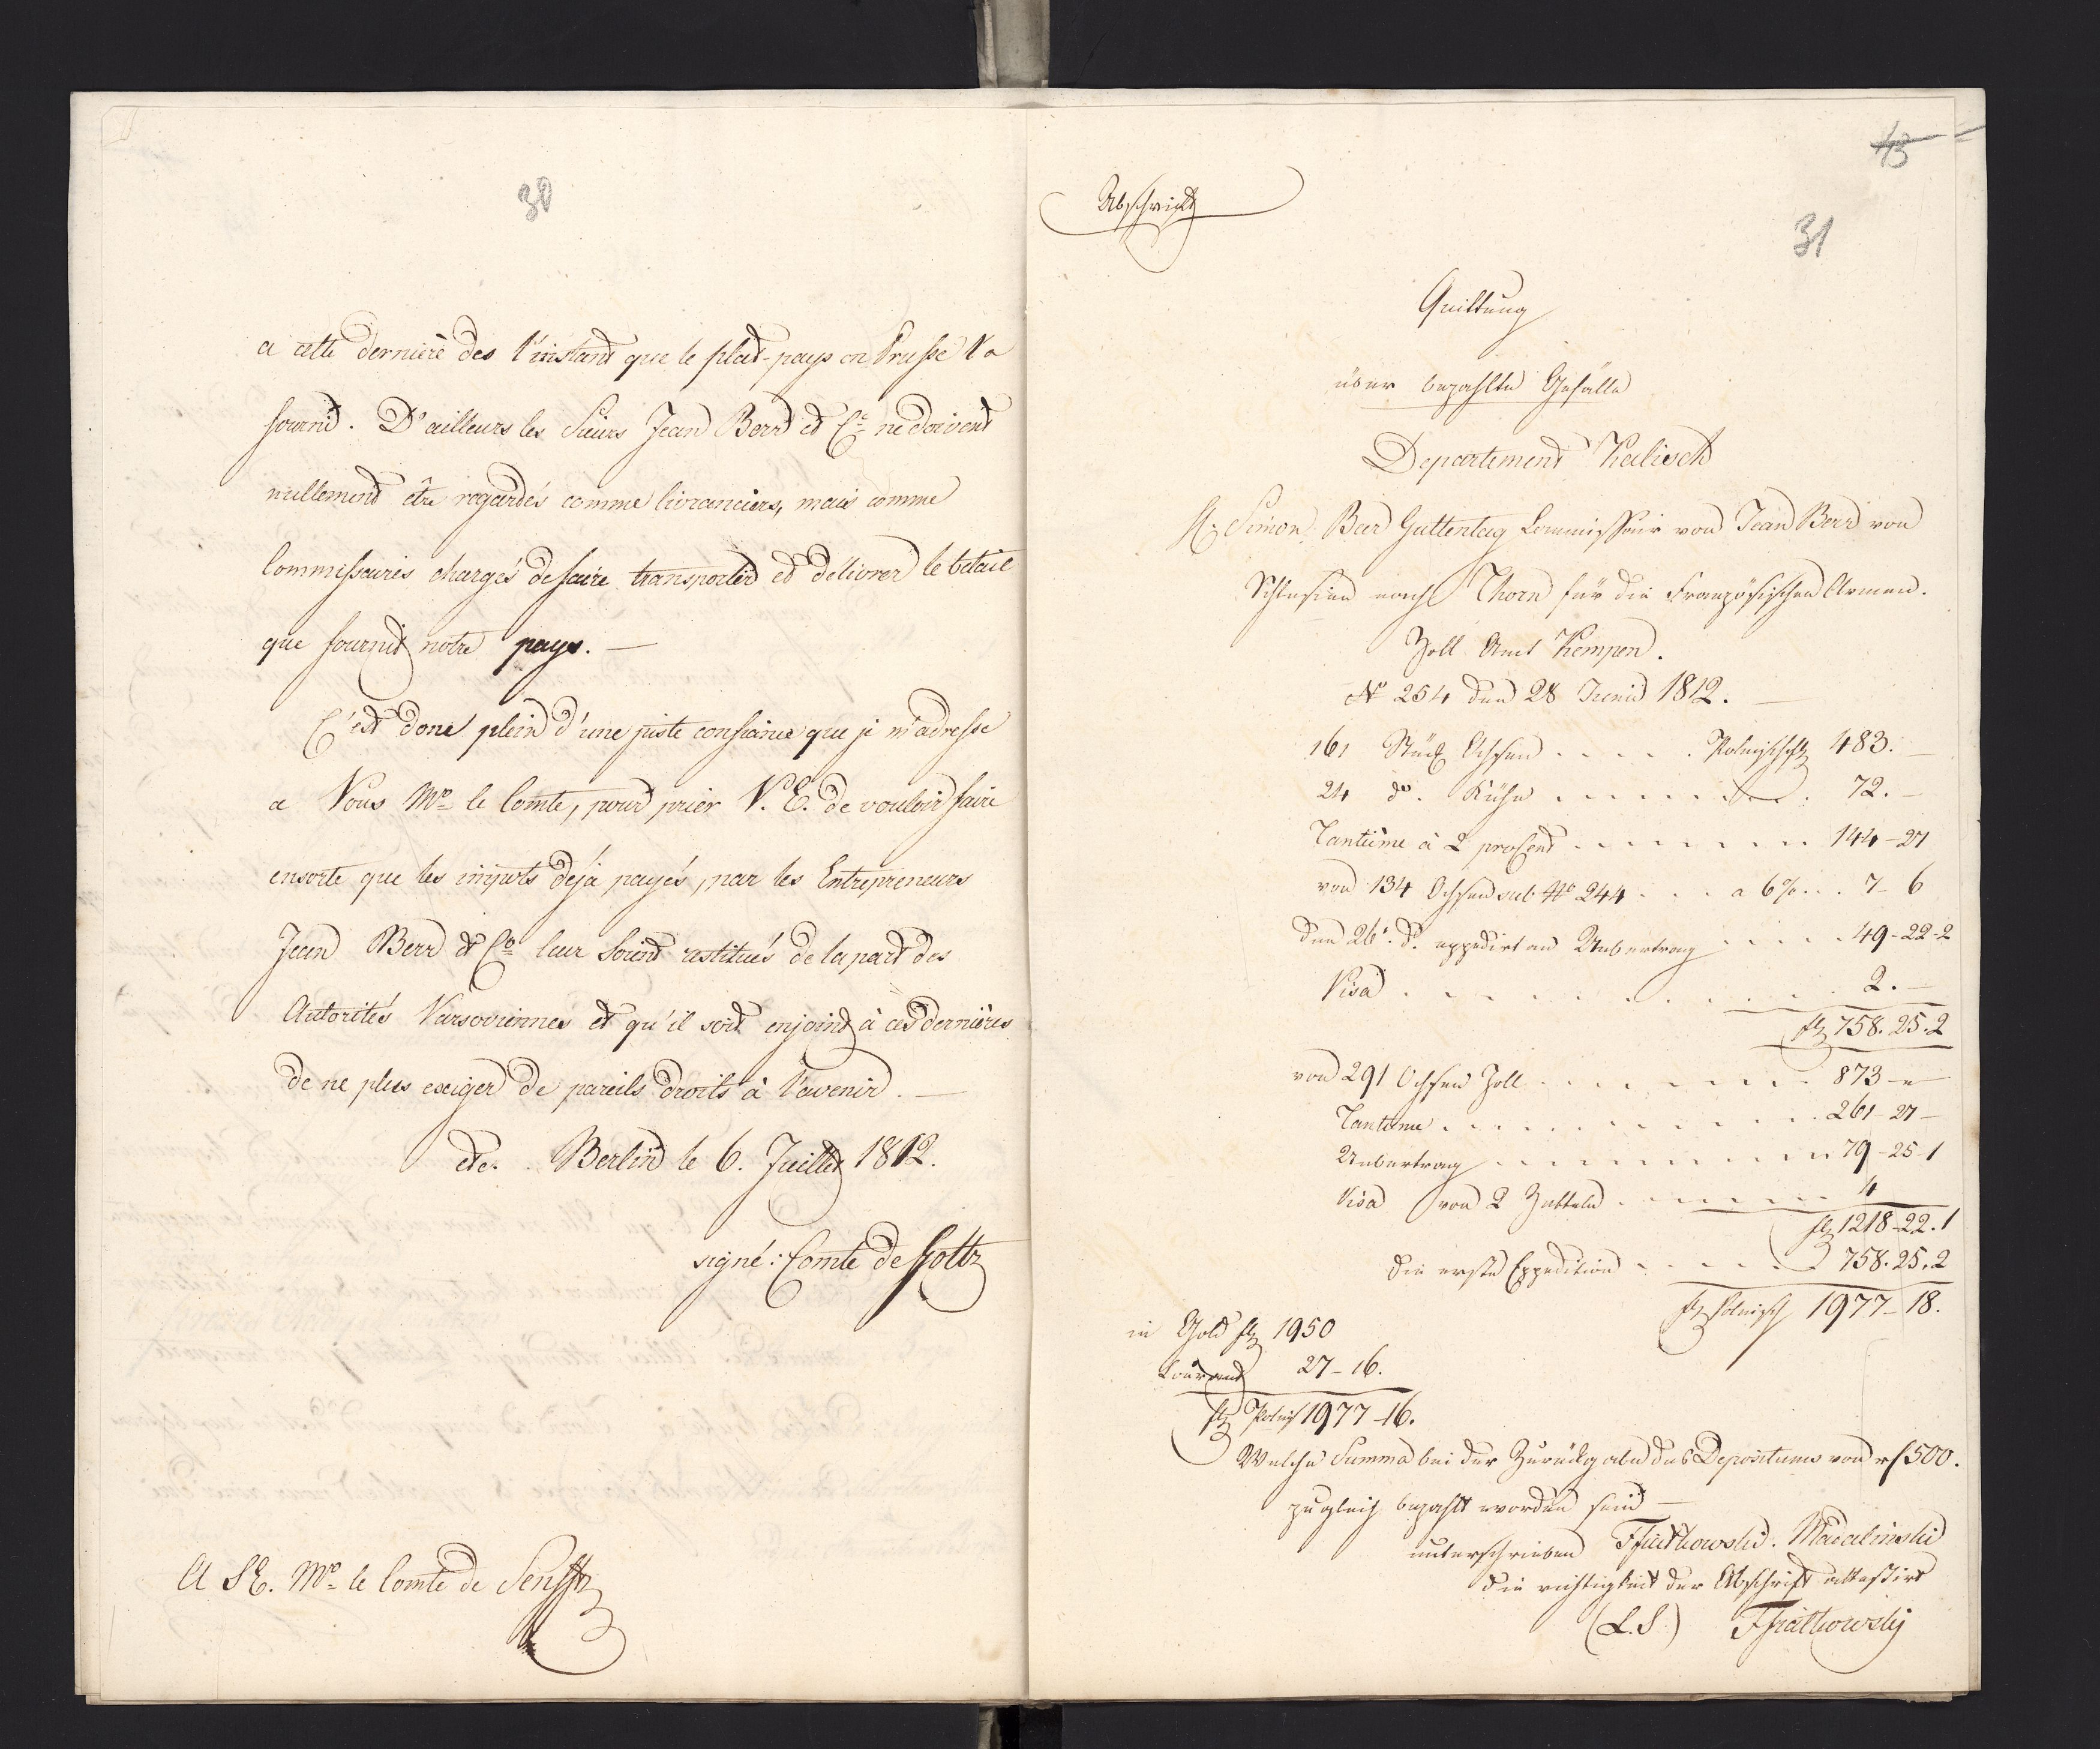 30
a cette derniere des l'instant que le plat-pays en Prusse l'a
fournit. D'ailleurs les Sieurs Jean Berr et Cie ne doivent
nullement être regardés comme livranciers, mais comme
Commissaires chargés de faire transporter et délivrer le betail
que fournit notre pays. —
C'est donc plein d'une juste confiance que je m'adresse
a Vous Mr le Comte, pour prier V. E. de vouloir faire
ensorte que les impots déja payés, par les Entrepreneurs
Jean Berr et Co leur soient restitués de la part des
Autorités Varsoviennes et qu'il soit enjoint à ces dernières
de ne plus exiger de pareils droits à l'avenir. —
etc. Berlin le 6. Juillet 1812.
signé: Comte de Goltz
A S.E. Mr le Comte de Senfft
43
31
Abschrift
Quittung
über bezahlte Gefälle
Departement Kalisch
H. Simon Beer Guttentag Commissair von Jean Berr von
Schlesien nach Thorn für die Französischen Armen.
Zoll Amt Kempen.
No 254 den 28 Junio 1812. —
161 Stück Ochsen . . . . . Polnisch fl 483. —
24 do. Kühe . . . . . . . 72. —
Tantième à 2 proCent . . . . . . . . 144-27
von 134 Ochsen sub No 244 . . . a 6% . . . 7-6
den 26t. d. expedirt an Uebertrag . . . . 49-22-2
Visa . . . . . . . . . . 2. —
fl 758.25.2
von 291 Ochsen Zoll . . . . . . . . 873-"
Tantieme . . . . . . . . . . 261-27-
Uebertrag . . . . . . . . . 79-25-1
Visa von 2 Zetteln . . . . . . . 4
fl 1218-22.1
die erste Expedition . . . . . . 758.25.2
fl polnisch 1977-18.
in Gold fl 1950
Courant 27-16.
fl Polnisch 1977-16.
Welche Summa bei der Zurückgabe des Depositums von rf 500.
zugleich bezahlt worden sind —
unterschrieben Madalinski
die richtigkeit der Abschrift attestirt
(L.S)